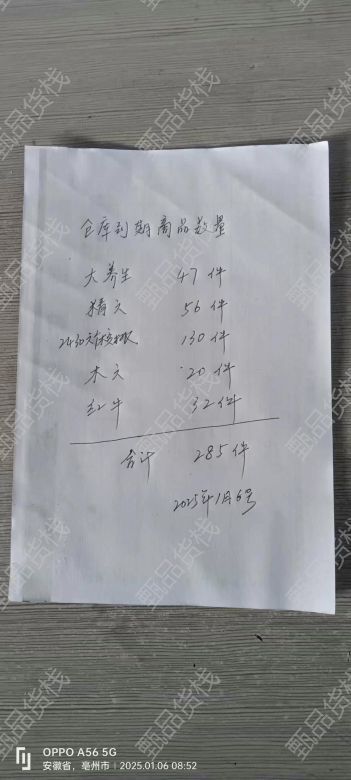 仓库到期商品数量
大养生 47件
猪大 56件
2430大核桃 130件
木大 20件
红牛 32件
合计 285件
2025年1月6号
OPPO A56 5G
安徽省，亳州市 | 2025.01.06 08:52
甄品货栈